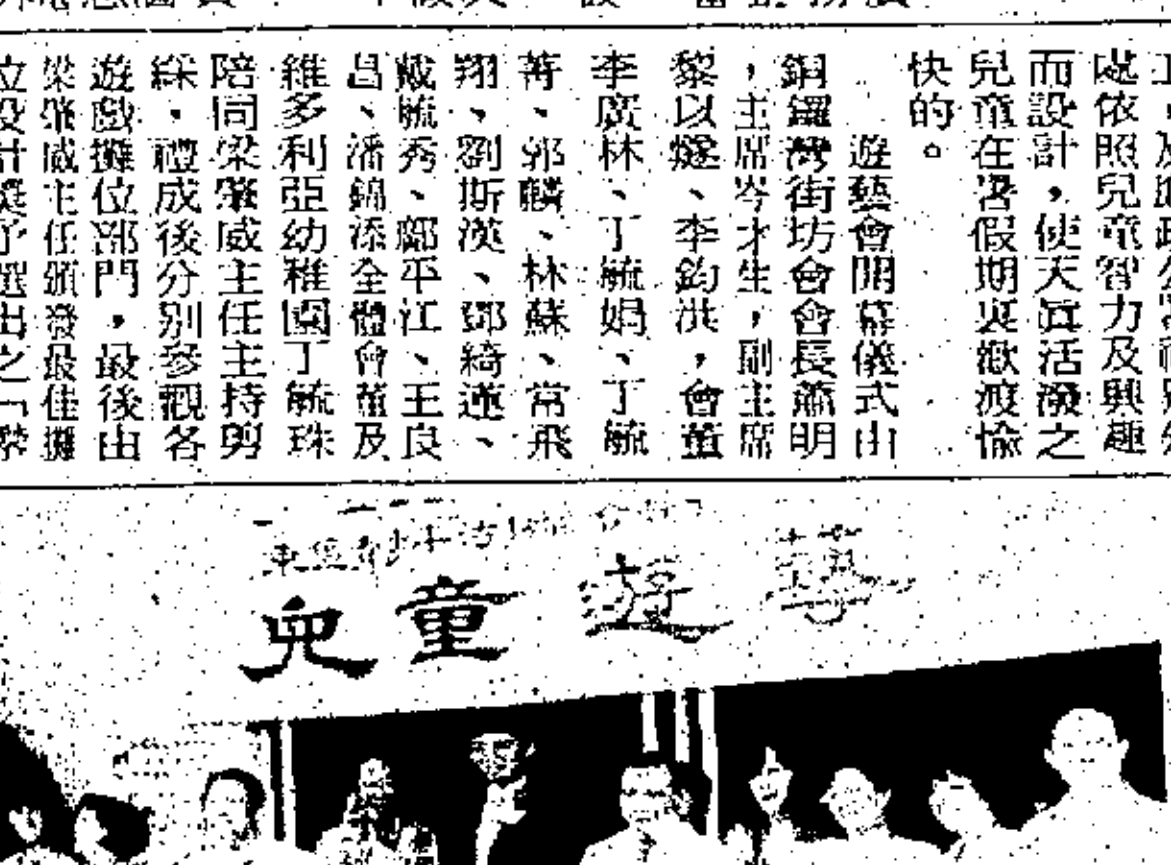 處依照兒童智力及興趣
而設計，使天眞活潑之
兒童在暑假期裏歡渡愉
快的。
遊藝會開幕儀式由
銅鑼灣街坊會會長蕭明
，主席岑才生，副主席
黎以燧、李鈞洪，會董
李廣林、丁毓娟、丁毓
菁、郭麟、林蘇、常飛
翔、劉斯漢、鄧綺蓮、
戴毓秀、鄺平江、王良
昌、潘錦添全體會董及
維多利亞幼稚園丁毓珠
陪同梁肇威主任主持剪
綵，禮成後分別參觀各
遊戲攤位部門，最後由
梁肇威主任頒發最佳攤
位設計獎予選出之「
兒童遊藝